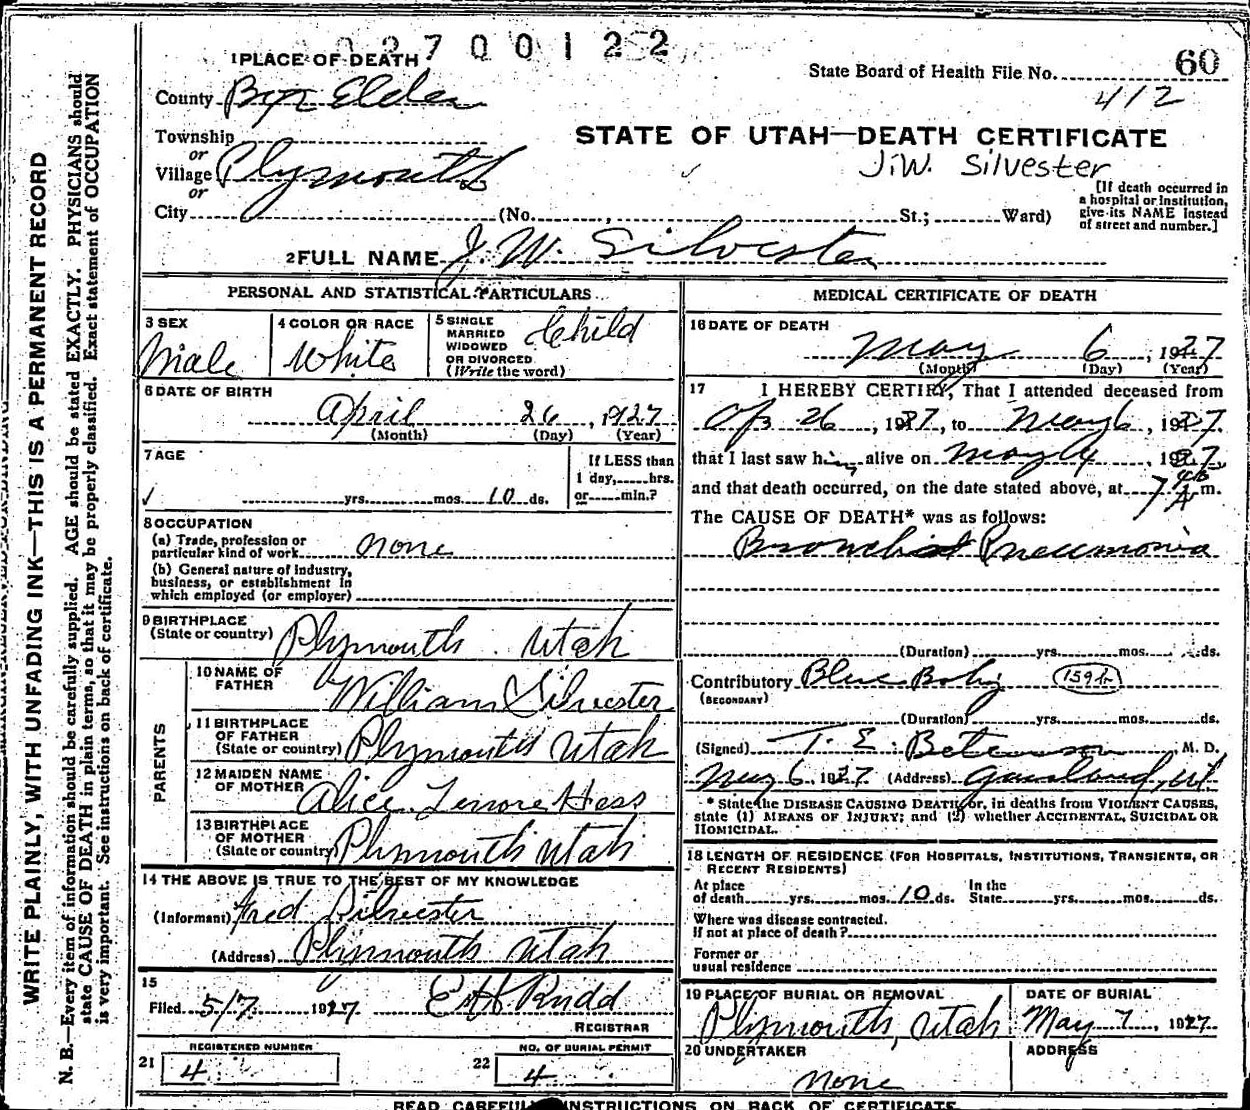 2700122
60
1 PLACE OF DEATH
State Board of Health File No.
412
County Box Elder
STATE OF UTAH—DEATH CERTIFICATE
Township
or
Village Plymouth
or
J.W. Silvester
City (No. , St.; Ward)
[If death occurred in
a hospital or institution,
give its NAME instead
of street and number.]
2 FULL NAME J. W. Silvester
PERSONAL AND STATISTICAL PARTICULARS
3 SEX
Male
4 COLOR OR RACE
White
5 SINGLE
MARRIED
WIDOWED
OR DIVORCED
(Write the word)
Child
6 DATE OF BIRTH
April 26, 1927
(Month) (Day) (Year)
7 AGE
yrs. mos. 10 ds.
If LESS than
1 day, hrs.
or min.?
8 OCCUPATION
(a) Trade, profession or
particular kind of work none
(b) General nature of industry,
business, or establishment in
which employed (or employer)
9 BIRTHPLACE
(State or country) Plymouth Utah
PARENTS
10 NAME OF
FATHER William Silvester
11 BIRTHPLACE
OF FATHER
(State or country) Plymouth Utah
12 MAIDEN NAME
OF MOTHER Alice Lenore Hess
13 BIRTHPLACE
OF MOTHER
(State or country) Plymouth Utah
14 THE ABOVE IS TRUE TO THE BEST OF MY KNOWLEDGE
(Informant) Fred Silvester
(Address) Plymouth Utah
15
Filed 5/7 1927 Rudd
REGISTRAR
21 REGISTERED NUMBER
4
22 NO. OF BURIAL PERMIT
4
MEDICAL CERTIFICATE OF DEATH
16 DATE OF DEATH
May 6, 1927
(Month) (Day) (Year)
17 I HEREBY CERTIFY, That I attended deceased from
Ap 26, 1927, to May 6, 1927
that I last saw him alive on May 4, 1927,
and that death occurred, on the date stated above, at 7 A m.
The CAUSE OF DEATH* was as follows:
Bronchial Pneumonia
(Duration) yrs. mos. ds.
Contributory Blue Baby
(SECONDARY)
(Duration) yrs. mos. ds.
(Signed) T. E. Betenson, M. D.
May 6, 1927 (Address) Garland, Ut
* State the DISEASE CAUSING DEATH, or, in deaths from VIOLENT CAUSES,
state (1) MEANS OF INJURY; and (2) whether ACCIDENTAL, SUICIDAL OR
HOMICIDAL.
18 LENGTH OF RESIDENCE (FOR HOSPITALS, INSTITUTIONS, TRANSIENTS, OR
RECENT RESIDENTS)
At place
of death yrs. mos. 10 ds.
In the
State yrs. mos. ds.
Where was disease contracted.
If not at place of death?
Former or
usual residence
19 PLACE OF BURIAL OR REMOVAL
Plymouth, Utah
DATE OF BURIAL
May 7, 1927
20 UNDERTAKER
none
ADDRESS
READ CAREFULLY INSTRUCTIONS ON BACK OF CERTIFICATE
WRITE PLAINLY, WITH UNFADING INK—THIS IS A PERMANENT RECORD
N. B.—Every item of information should be carefully supplied. AGE should be stated EXACTLY. PHYSICIANS should
state CAUSE OF DEATH in plain terms, so that it may be properly classified. Exact statement of OCCUPATION
is very important. See instructions on back of certificate.